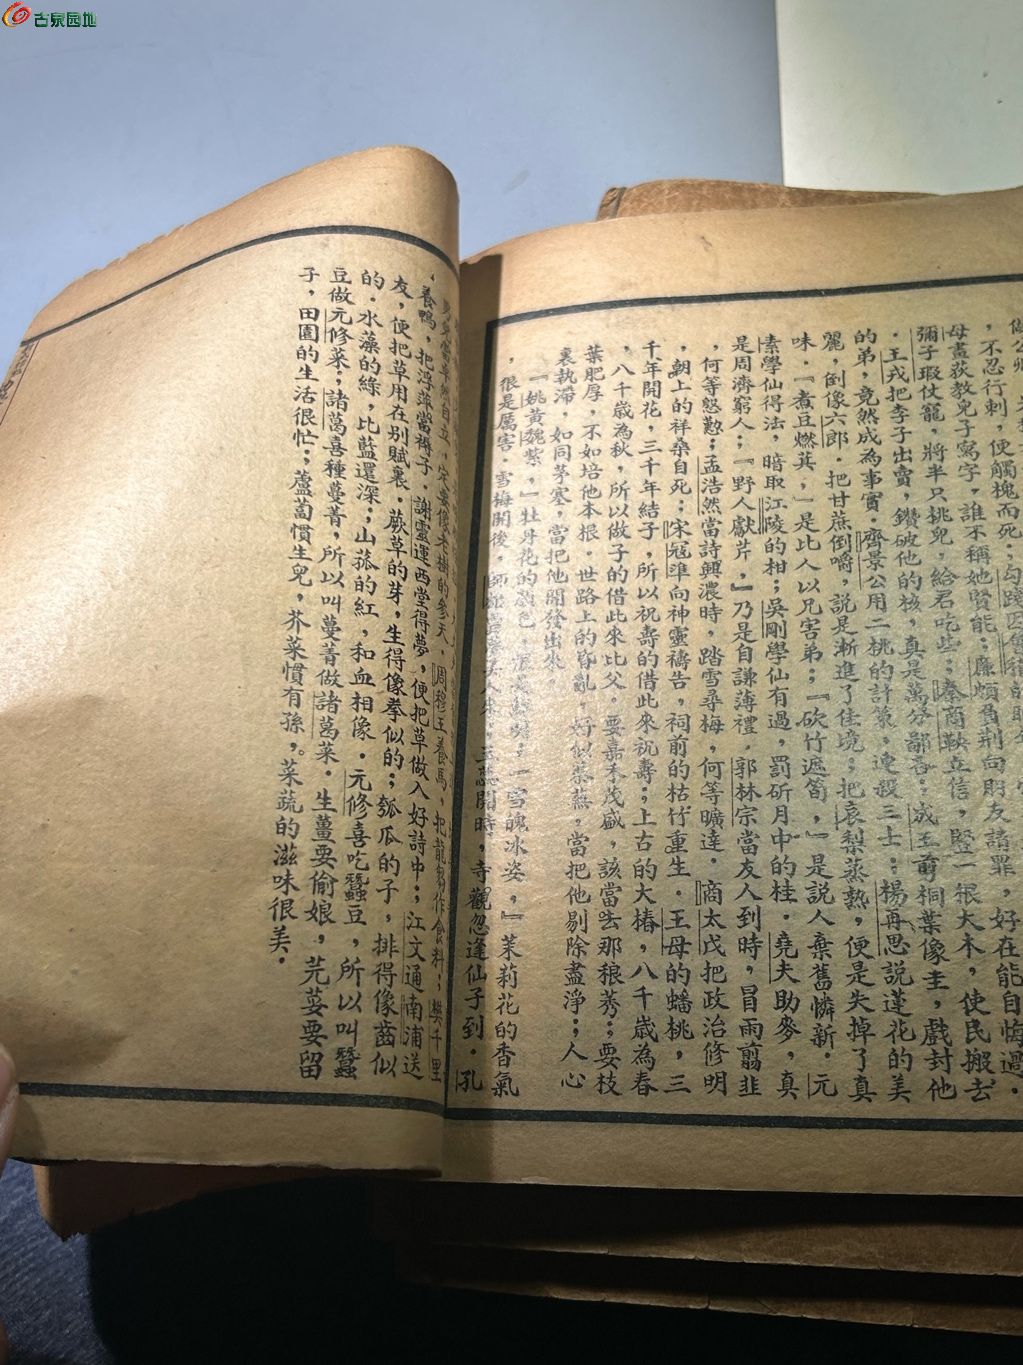 古泉园地
，不忍行刺，便觸槐而死；
母畫荻教兒子寫字，誰不稱她賢能；廉頗負荆向朋友請罪，好在能自悔過．
彌子瑕仗寵，將半只挑兒，給君吃些；秦商鞅立信，豎一根大木，使民搬去
．王戎把李子出賣，鑽破他的核，真是萬分鄙吝；成王剪桐葉像圭，戲封他
的弟，竟然成為事實．齊景公用二桃的計策，連殺三士；楊再思說蓮花的美
麗，倒像六郎．把甘蔗倒嚼，說是漸進了佳境；把哀梨蒸熟，便是失掉了真
味．『煮豆燃萁，』是比人以兄害弟；『砍竹遮筍，』是説人棄舊憐新．元
素學仙得法，暗取江陵的柑；吳剛學仙有過，罰斫月中的桂．堯夫助麥，真
是周濟窮人；『野人獻芹，』乃是自謙薄禮．郭林宗當友人到時，冒雨翦韭
，何等慇懃；孟浩然當詩興濃時，踏雪尋梅，何等曠達．商太戊把政治修明
，朝上的祥桑自死；宋寇準向神靈禱告，祠前的枯竹重生．王母的蟠桃，三
千年開花，三千年結子，所以祝壽的借此來祝壽；上古的大椿，八千歲為春
，八千歲為秋，所以做子的借此來比父．要嘉禾茂盛，該當去那稂莠；要枝
葉肥厚，不如培他本根．世路上的昏亂，好似蓁蕪，當把他剔除盡淨；人心
裏執滯，如同茅塞，當把他開發出來．
『姚黃魏紫，』牡丹花的顏色，一雪魄冰姿，』茉莉花的香氣
，很是厲害．雪梅開後，玉蕊開時，寺觀忽逢仙子到．孔
定要像老樹的參天．周穆王養馬，把龍芻作食料；樊千里
養鴨，把浮萍當褥子．謝靈運西堂得夢，便把草做入好詩中；江文通南浦送
友，便把草用在别賦裏．蕨草的芽，生得像拳似的；瓠瓜的子，排得像齒似
的．水藻的綠，比藍還深；山菰的紅，和血相像．元修喜吃蠶豆，所以叫蠶
豆做元修菜；諸葛喜種蔓菁，所以叫蔓菁做諸葛菜．生薑要偷娘，芫荽要留
子，田園的生活很忙；蘆萄慣生兒，芥菜慣有孫，菜蔬的滋味很美．